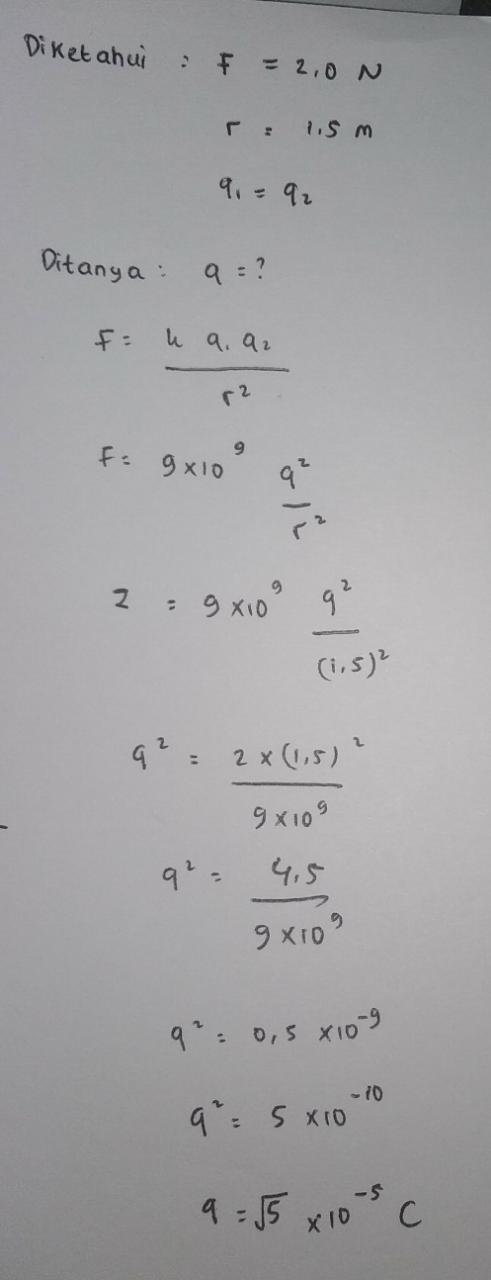 Diketahui : F = 2,0 N
r = 1.5 m
q₁ = q₂
Ditanya : q = ?
F = k q₁ q₂ / r²
F = 9 x 10⁹ q² / r²
2 = 9 x 10⁹ q² / (1,5)²
q² = 2 x (1,5)² / 9 x 10⁹
q² = 4,5 / 9 x 10⁹
q² = 0,5 x 10⁻⁹
q² = 5 x 10⁻¹⁰
q = √5 x 10⁻⁵ C